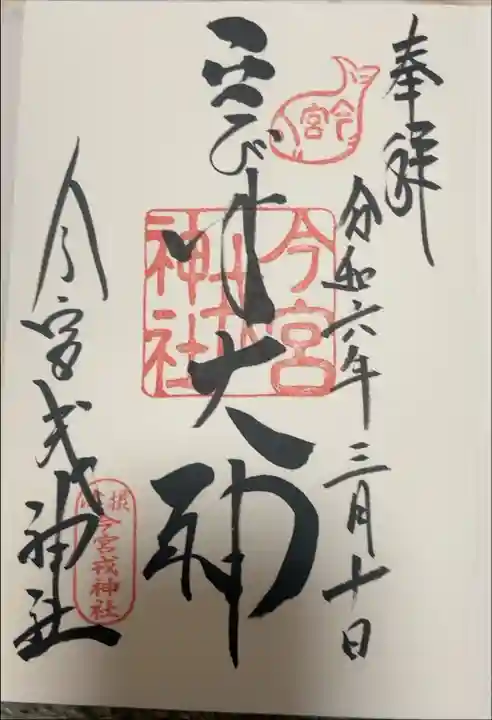 奉拝
令和六年三月十日
今宮
び
大神
今宮
戎
神社
今宮戎神社
摂津
今宮戎神社